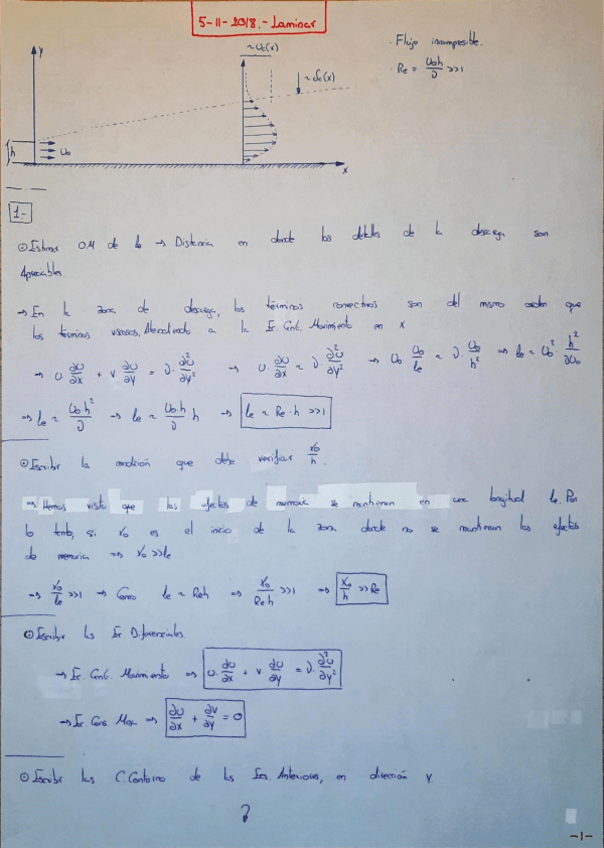 5-11-2018.- Laminar
y
~Uc(x)
~δc(x)
· Flujo incompresible.
· Re = U0h/ν >>1
h
U0
x
1.-
⊙ Estimar OM de le → Distancia en donde los detalles de la descarga son
Apreciables.
→ En la zona de descarga, los términos convectivos son del mismo orden que
los términos viscosos. Atendiendo a la Ec. Cnt. Movimiento en x
→ U ∂U/∂x + V ∂U/∂y = ν ∂²U/∂y² → U ∂U/∂x ~ ν ∂²U/∂y² → U0 U0/le ~ ν U0/h² ⇒ le ~ U0² ·
→ le ~ U0h²/ν → le ~ U0h/ν h → le ~ Re·h >>1
⊙ Escribir la condición que debe verificar x0/h.
→ Hemos visto que los efectos de memoria se mantienen en una longitud le. Por
lo tanto, si x0 es el inicio de la zona donde no se mantienen los efectos
de memoria ⇒ x0 >> le
→ x0/le >>1 → Como le ~ Reh ⇒ x0/Reh >>1 ⇒ x0/h >> Re
⊙ Escribir las Ec Diferenciales.
→ Ec. Cnt. Movimiento ⇒ U·∂U/∂x + V ∂U/∂y = ν·∂²U/∂y²
→ Ec Cons Mas ⇒ ∂U/∂x + ∂V/∂y = 0
⊙ Escribir las C.Contorno de las Ecs. Anteriores, en dirección y.
?
-1-